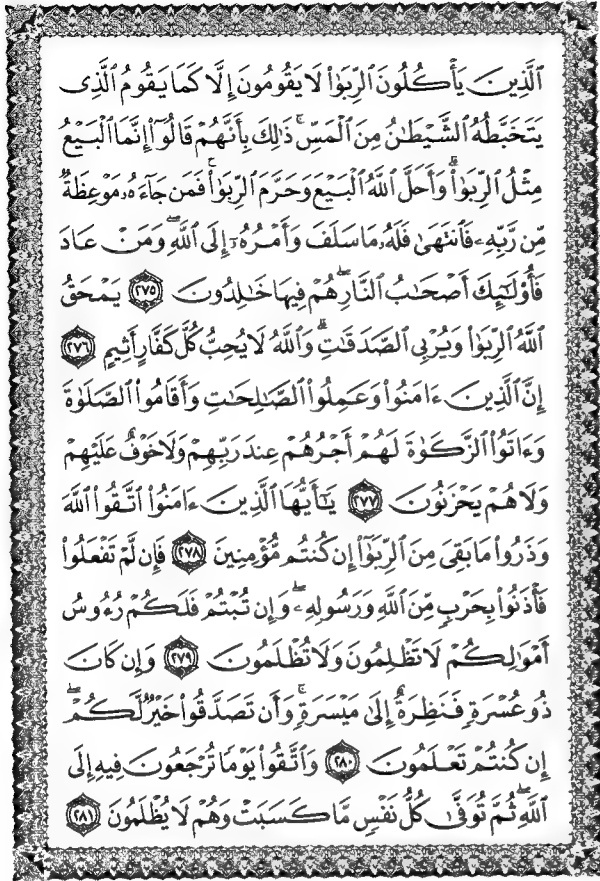 ٱلَّذِينَ يَأۡكُلُونَ ٱلرِّبَوٰاْ لَا يَقُومُونَ إِلَّا كَمَا يَقُومُ ٱلَّذِى
يَتَخَبَّطُهُ ٱلشَّيۡطَٰنُ مِنَ ٱلۡمَسِّۚ ذَٰلِكَ بِأَنَّهُمۡ قَالُوٓاْ إِنَّمَا ٱلۡبَيۡعُ
مِثۡلُ ٱلرِّبَوٰاْۗ وَأَحَلَّ ٱللَّهُ ٱلۡبَيۡعَ وَحَرَّمَ ٱلرِّبَوٰاْۚ فَمَن جَآءَهُۥ مَوۡعِظَةٌ
مِّن رَّبِّهِۦ فَٱنتَهَىٰ فَلَهُۥ مَا سَلَفَ وَأَمۡرُهُۥٓ إِلَى ٱللَّهِۖ وَمَنۡ عَادَ
فَأُوْلَٰٓئِكَ أَصۡحَٰبُ ٱلنَّارِۖ هُمۡ فِيهَا خَٰلِدُونَ ٢٧٥ يَمۡحَقُ
ٱللَّهُ ٱلرِّبَوٰاْ وَيُرۡبِى ٱلصَّدَقَٰتِۗ وَٱللَّهُ لَا يُحِبُّ كُلَّ كَفَّارٍ أَثِيمٍ ٢٧٦
إِنَّ ٱلَّذِينَ ءَامَنُواْ وَعَمِلُواْ ٱلصَّٰلِحَٰتِ وَأَقَامُواْ ٱلصَّلَوٰةَ
وَءَاتَوُاْ ٱلزَّكَوٰةَ لَهُمۡ أَجۡرُهُمۡ عِندَ رَبِّهِمۡ وَلَا خَوۡفٌ عَلَيۡهِمۡ
وَلَا هُمۡ يَحۡزَنُونَ ٢٧٧ يَٰٓأَيُّهَا ٱلَّذِينَ ءَامَنُواْ ٱتَّقُواْ ٱللَّهَ
وَذَرُواْ مَا بَقِىَ مِنَ ٱلرِّبَوٰٓاْ إِن كُنتُم مُّؤۡمِنِينَ ٢٧٨ فَإِن لَّمۡ تَفۡعَلُواْ
فَأۡذَنُواْ بِحَرۡبٍ مِّنَ ٱللَّهِ وَرَسُولِهِۦۖ وَإِن تُبۡتُمۡ فَلَكُمۡ رُءُوسُ
أَمۡوَٰلِكُمۡ لَا تَظۡلِمُونَ وَلَا تُظۡلَمُونَ ٢٧٩ وَإِن كَانَ
ذُو عُسۡرَةٍ فَنَظِرَةٌ إِلَىٰ مَيۡسَرَةٍۚ وَأَن تَصَدَّقُواْ خَيۡرٌ لَّكُمۡۖ
إِن كُنتُمۡ تَعۡلَمُونَ ٢٨٠ وَٱتَّقُواْ يَوۡمًا تُرۡجَعُونَ فِيهِ إِلَى
ٱللَّهِۖ ثُمَّ تُوَفَّىٰ كُلُّ نَفۡسٍ مَّا كَسَبَتۡ وَهُمۡ لَا يُظۡلَمُونَ ٢٨١